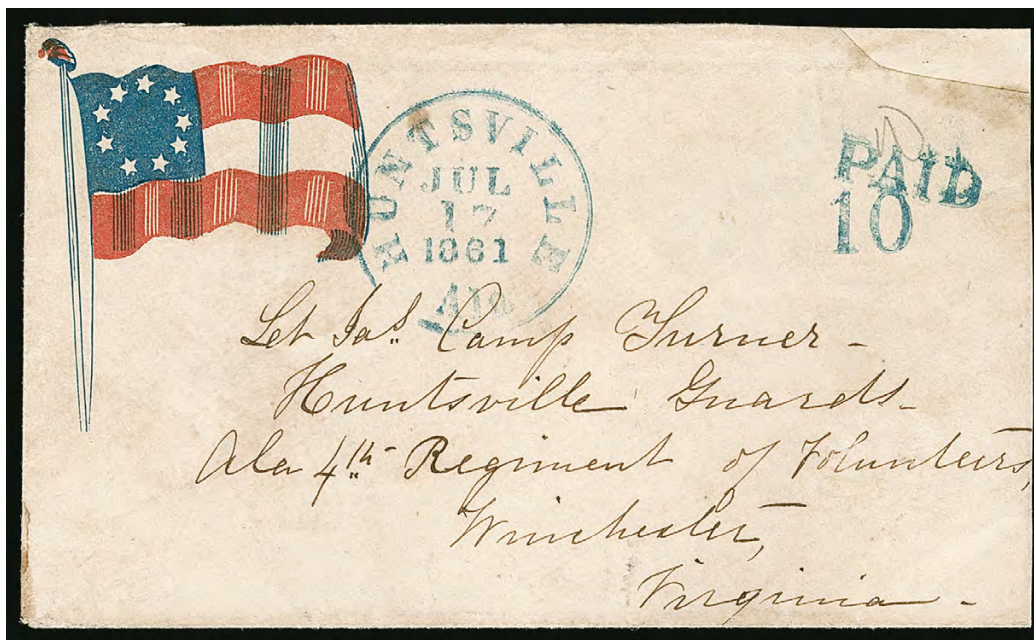 HUNTSVILLE
JUL
17
1861
Ala
PAID
10
Let Jas. Camp Turner -
Huntsville Guards -
Ala 4th Regiment of Volunteers,
Winchester,
Virginia -